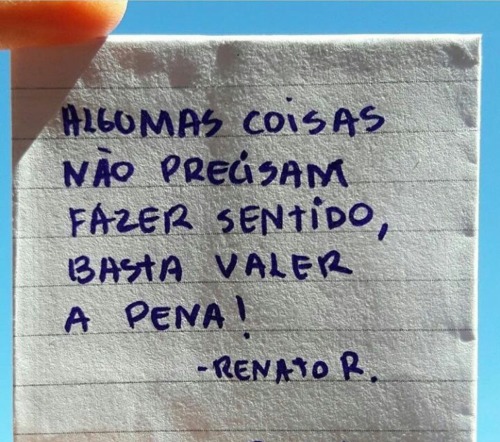 ALGUMAS COISAS
NÃO PRECISAM
FAZER SENTIDO,
BASTA VALER
A PENA!
-RENATO R.